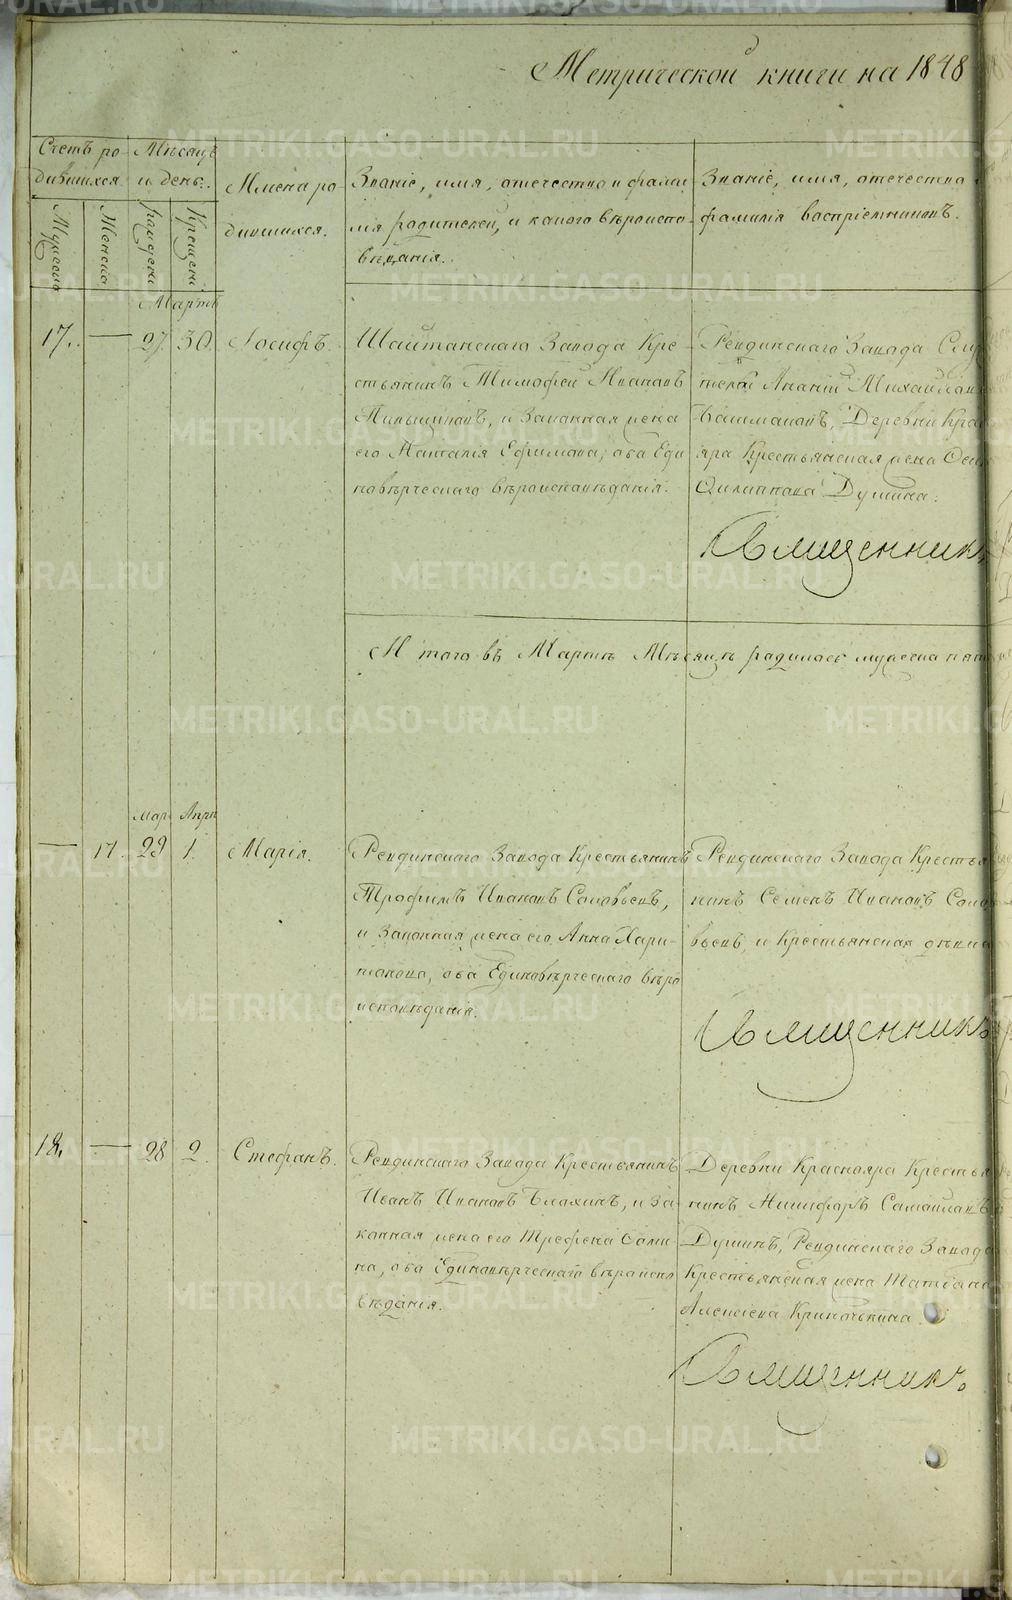 Метрической книги на 1848
Счетъ ро-
дившихся
Мѣсяцъ
и день.
Мужеска
Женска
рожденія
Крещенія
Имена ро-
дившихся.
Званіе, имя, отечество и фами
лія родителей, и какого вѣроиспо-
вѣданія.
Званіе, имя, отечество
фамилія воспріемниковъ.
Мартъ
17. — 27. 30. Іосифъ.
Шайтанскаго Завода Кре-
стьянинъ Тимофей Ивановъ
и Законная жена
его Наталія Ефимова, оба Еди
новѣрческаго вѣроисповѣданія.
Ревдинскаго Завода
Ананій Михайловъ
Башмаковъ, Деревни Крас
яра Крестьянская жена
Филиппова Душина.
Священникъ
Итого въ Мартѣ Мѣсяцѣ родилось мужеска
Мар Апрѣ
— 17. 29 1. Марія.
Ревдинскаго Завода Крестьянинъ
Трофимъ Ивановъ Соловьевъ,
и Законная жена его Анна Хари-
тонова, оба Единовѣрческаго вѣро
исповѣданія.
Ревдинскаго Завода Крестья
нинъ Семенъ Ивановъ Соло
вьевъ, и Крестьянская дѣвица
Священникъ
18. — 28 2. Стефанъ.
Ревдинскаго Завода Крестьянинъ
Иванъ Ивановъ Блохинъ, и За-
конная жена его Трефена
оба Единовѣрческаго вѣроиспо
вѣданія.
Деревни Краснояра Крестья
нинъ Никифоръ Самойловъ
Душинъ, Ревдинскаго Завода
Крестьянская жена Татьяна
Алексѣева
Священникъ
METRIKI.GASO-URAL.RU